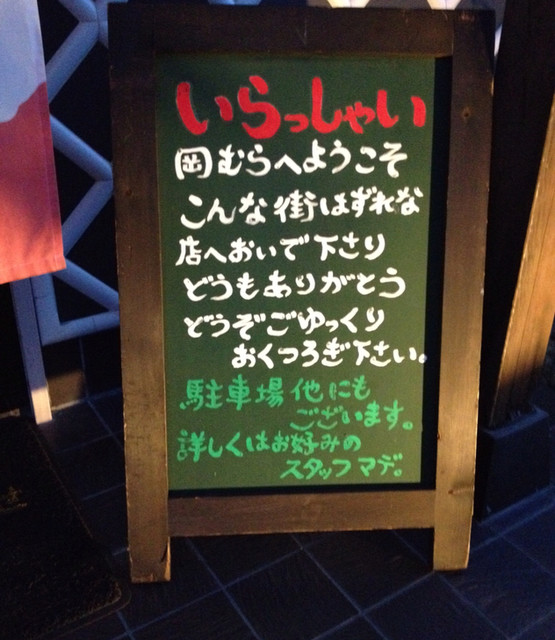 いらっしゃい
岡むらへようこそ
こんな街はずれな
店へおいで下さり
どうもありがとう
どうぞごゆっくり
おくつろぎ下さい。
駐車場他にも
ございます。
詳しくはお好みの
スタッフマデ。